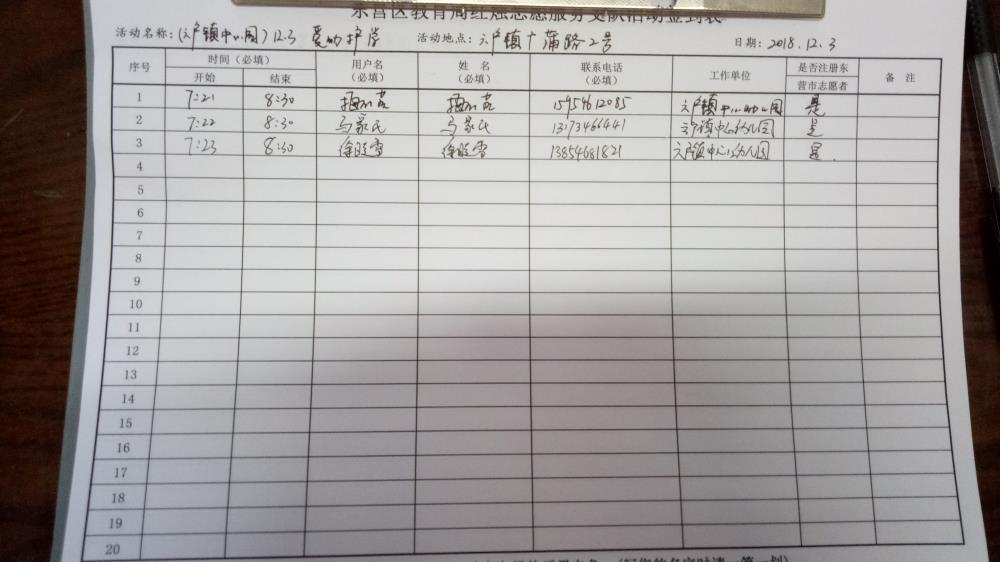 东营区教育局红烛志愿服务支队活动签到表
活动名称:(六户镇中心园)12.3 爱心护学 活动地点:六户镇广蒲路2号 日期:2018.12.3
序号 时间(必填) 用户名(必填) 姓 名(必填) 联系电话(必填) 工作单位 是否注册东营市志愿者 备 注
开始 结束
1 7:21 8:30 15954612085 六户镇中心幼儿园 是
2 7:22 8:30 马家民 马家民 13173466441 六户镇中心幼儿园 是
3 7:23 8:30 徐晓雪 徐晓雪 13854681821 六户镇中心幼儿园 是
4
5
6
7
8
9
10
11
12
13
14
15
16
17
18
19
20